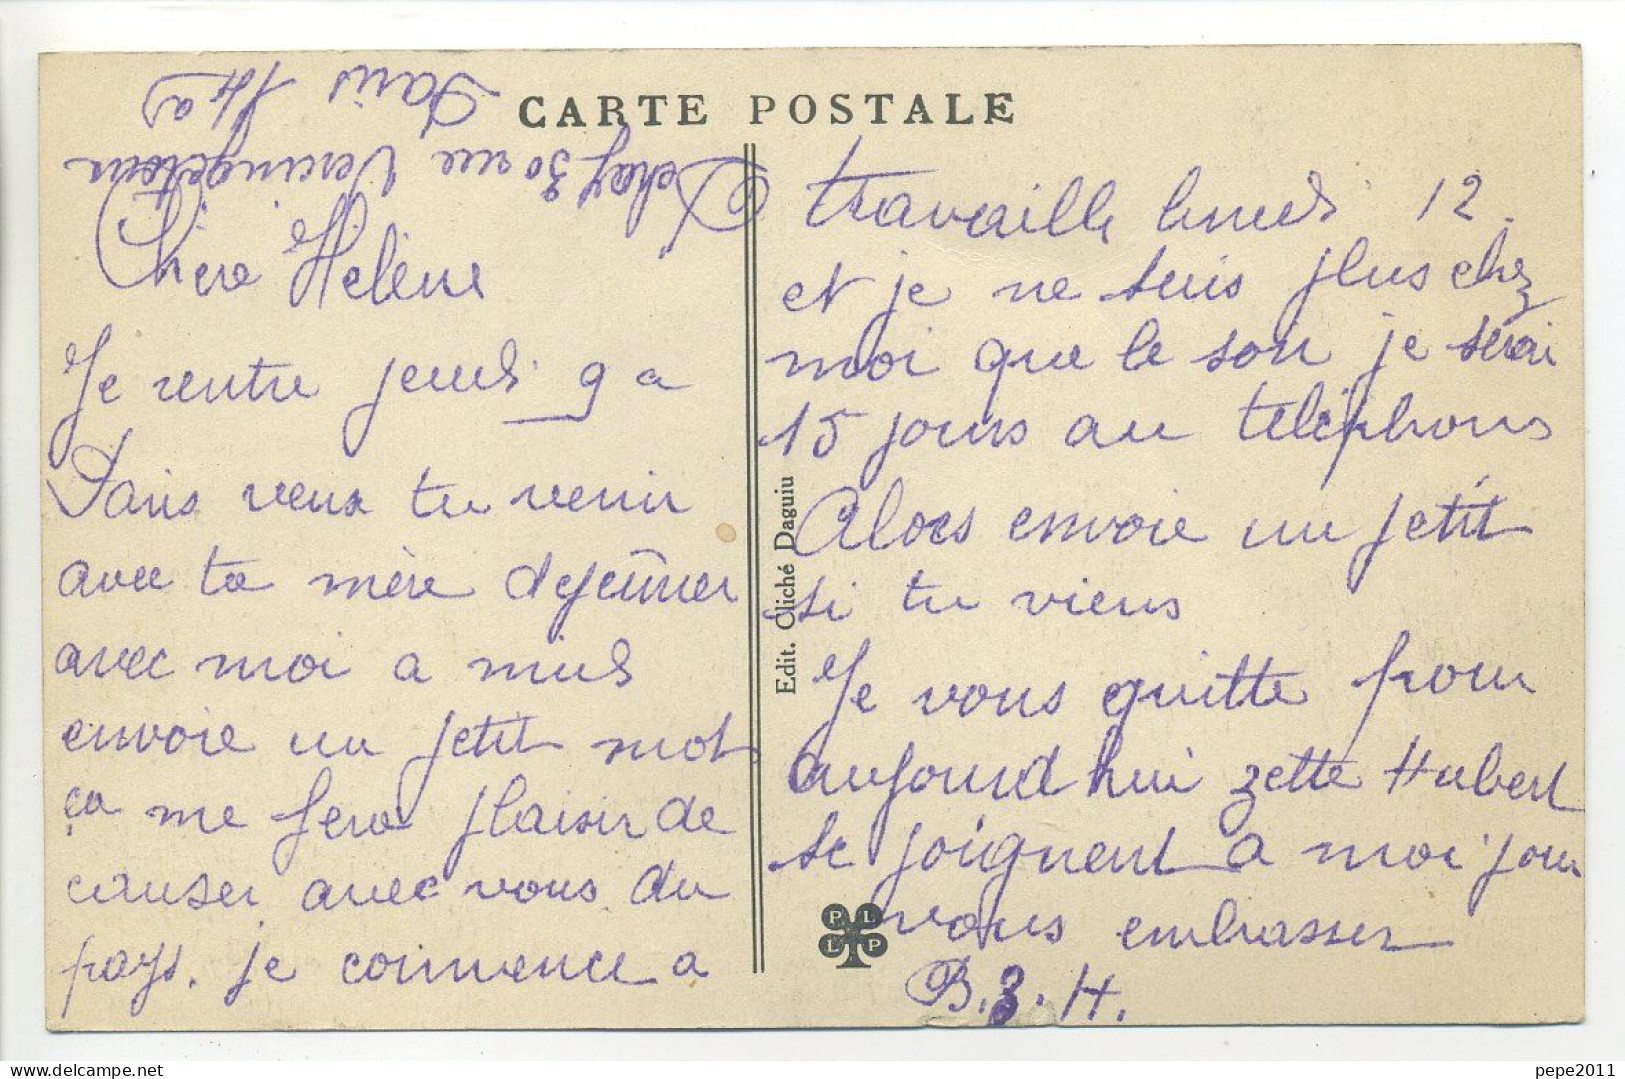 CARTE POSTALE
Dehay 30 rue Vercingétorix
Paris 14 a
Chère Hélène
Je rentre jeudi 9 a
Paris veux tu venir
avec ta mère dejeûner
avec moi a midi
envoie un petit mot
ça me fera plaisir de
causer avec vous du
pays. je commence a
travaille lundi 12.
et je ne suis plus chez
moi que le soir je serai
15 jours au téléphons
Alors envoie un petit
si tu viens
Je vous quitte pour
aujourd hui zette Hubert
se joignent a moi pour
vous embrasser
B. Z. H.
Edit. Cliché Daguiu
P L
L P
pepe2011